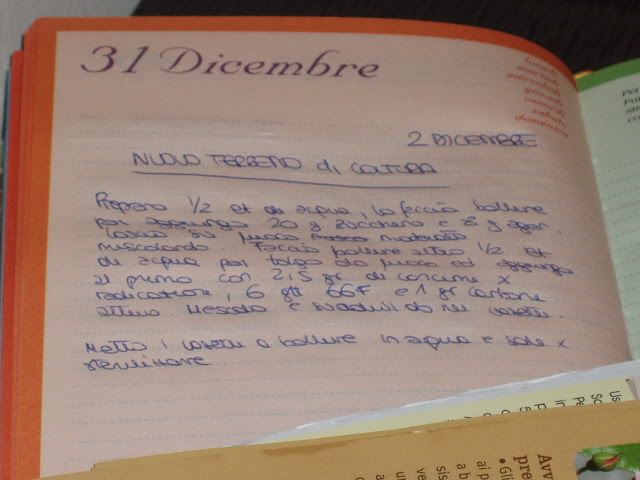 31 Dicembre
lunedì
martedì
mercoledì
giovedì
venerdì
sabato
domenica
2 DICEMBRE
NUOVO TERRENO di COLTURA
Preparo 1/2 lt di acqua, la faccio bollire
poi aggiungo 20 g zucchero e 8 g agar.
Lascio su fuoco mescolando. Faccio bollire altro 1/2 lt
di acqua poi tolgo da fuoco ed aggiungo
al primo con 2,5 gr di concime x
radicazione, 6 gtt 66F e 1 gr carbone
attivo. Mescolo e suddivido nei vasetti.
Metto i vasetti a bollire in acqua e sale x
sterilizzare
Per
Us
Avv
pre